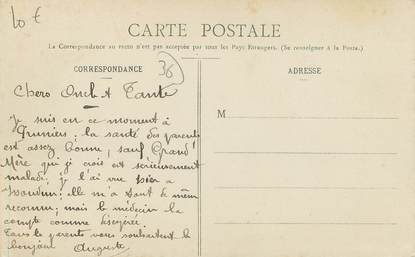 10 €
CARTE POSTALE
La Correspondance au recto n'est pas acceptée par tous les Pays Étrangers. (Se renseigner à la Poste.)
CORRESPONDANCE
36
ADRESSE
M
Chers Oncle et Tante
Je suis en ce moment à
la santé des parents
est assez bonne, sauf Grand'
Mère que je crois est sérieusement
malade; je l'ai vue hier à
elle m'a tout de même
reconnu, mais le médecin la
compte comme désespérée.
Tous les parents vous souhaitent le
bonjour Auguste